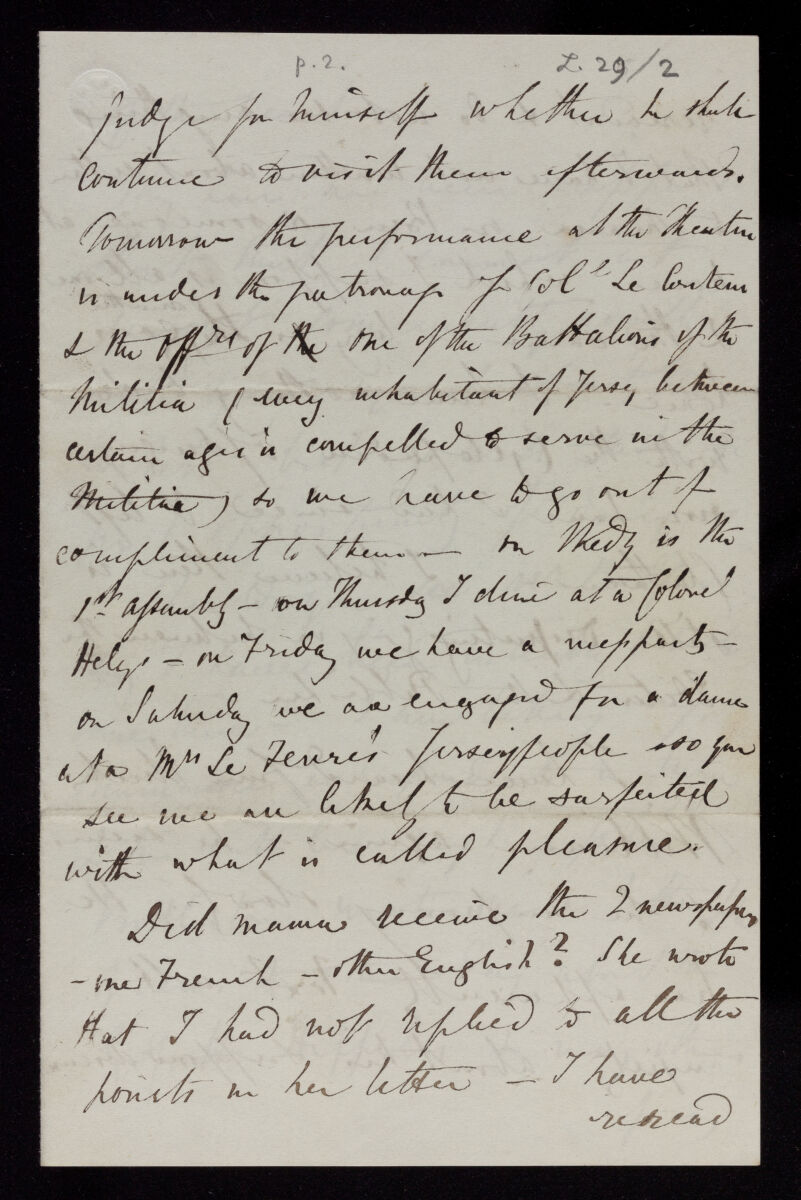 p.2. L.29/2
judge for himself whether he shall
continue to visit them afterwards.
Tomorrow the performance at the Theatre
is under the patronage of Col.l Le
& the Offrs of the one of the Battalions of the
Militia (every inhabitant of Jersey between
certain ages is compelled to serve in the
Militia) so we have to go out of
compliment to them — on is the
1st assembly — on Thursday I dine at a Colonel
Helys — on Friday we have a party —
on Saturday we are engaged for a dance
at a Mrs Le Jersey people so you
see we are likely to be surfeited
with what is called pleasure.
Did mama receive the 2 newspapers
- one French - other English? She wrote
that I had not replied to all the
points in her letter — I have
reread